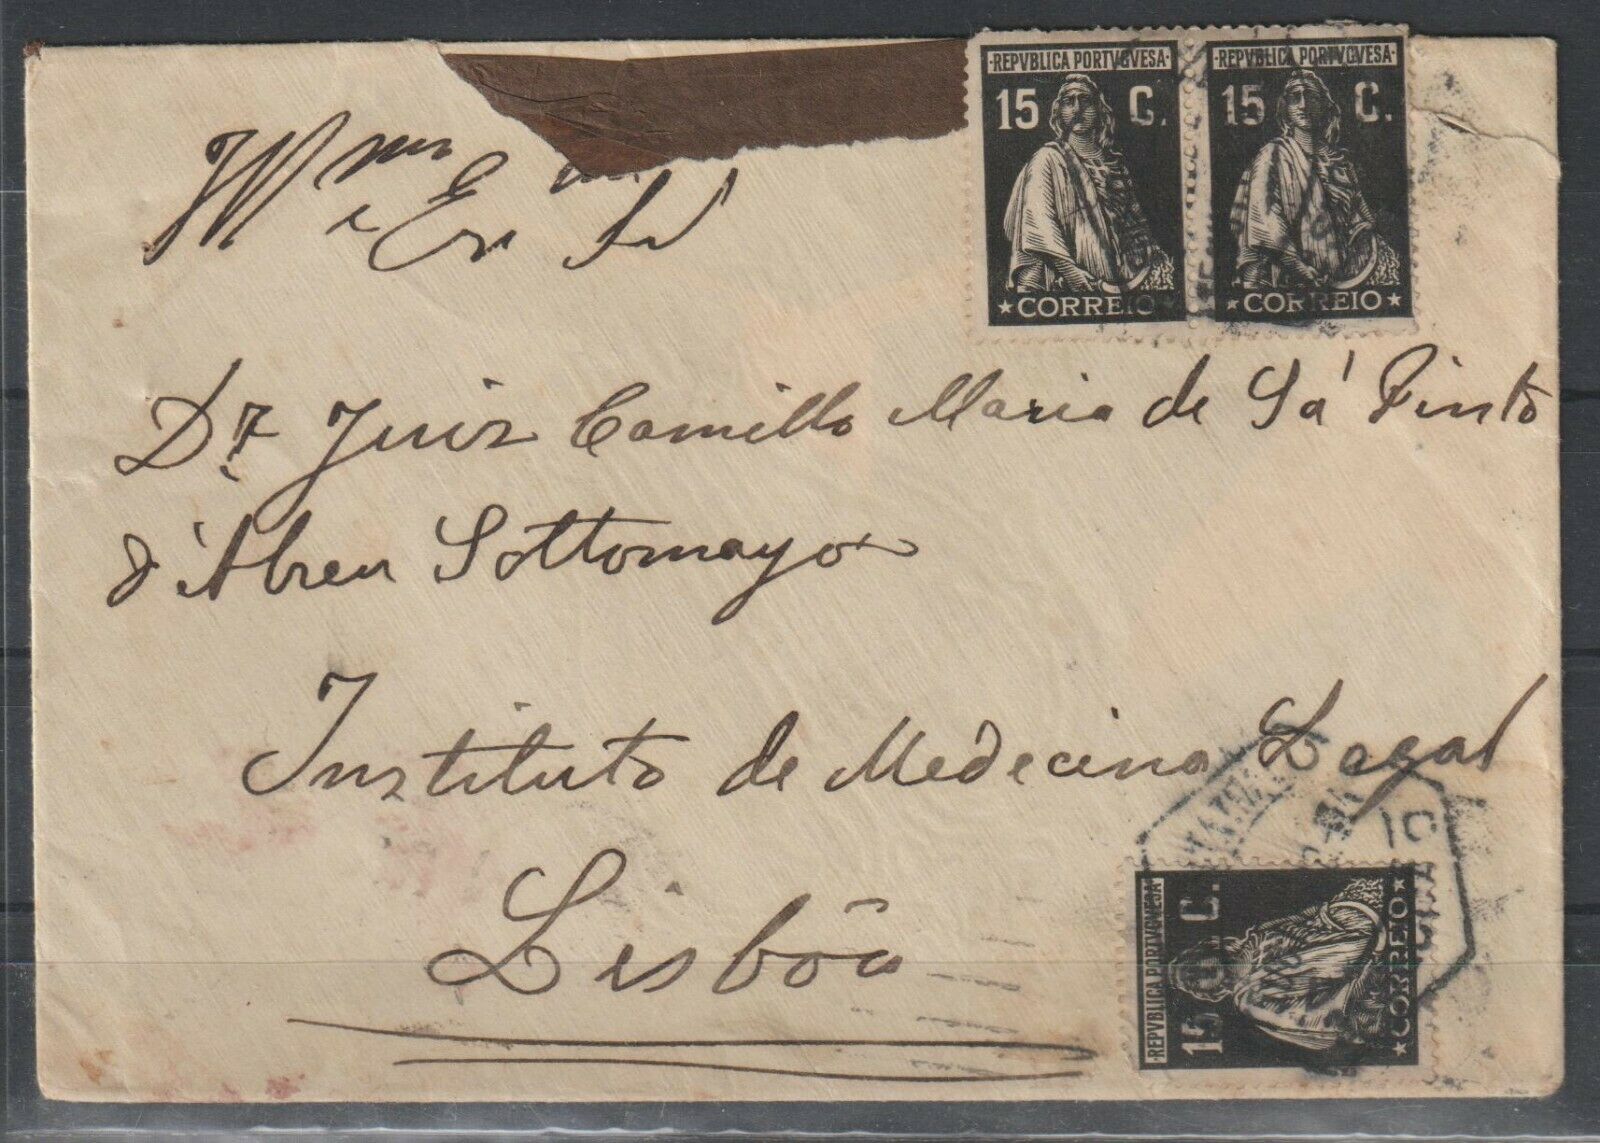 ·REPVBLICA PORTVGVESA· ·REPVBLICA PORTVGVESA·
15 C. 15 C.
CORREIO CORREIO
Mmo
e Exmo Sr
Dr. Juiz Camillo Maria de Sá Pinto
d'Abreu Sottomayor
Instituto de Medecina Legal
Lisbôa
·REPVBLICA PORTVGVESA·
15 C.
CORREIO
10